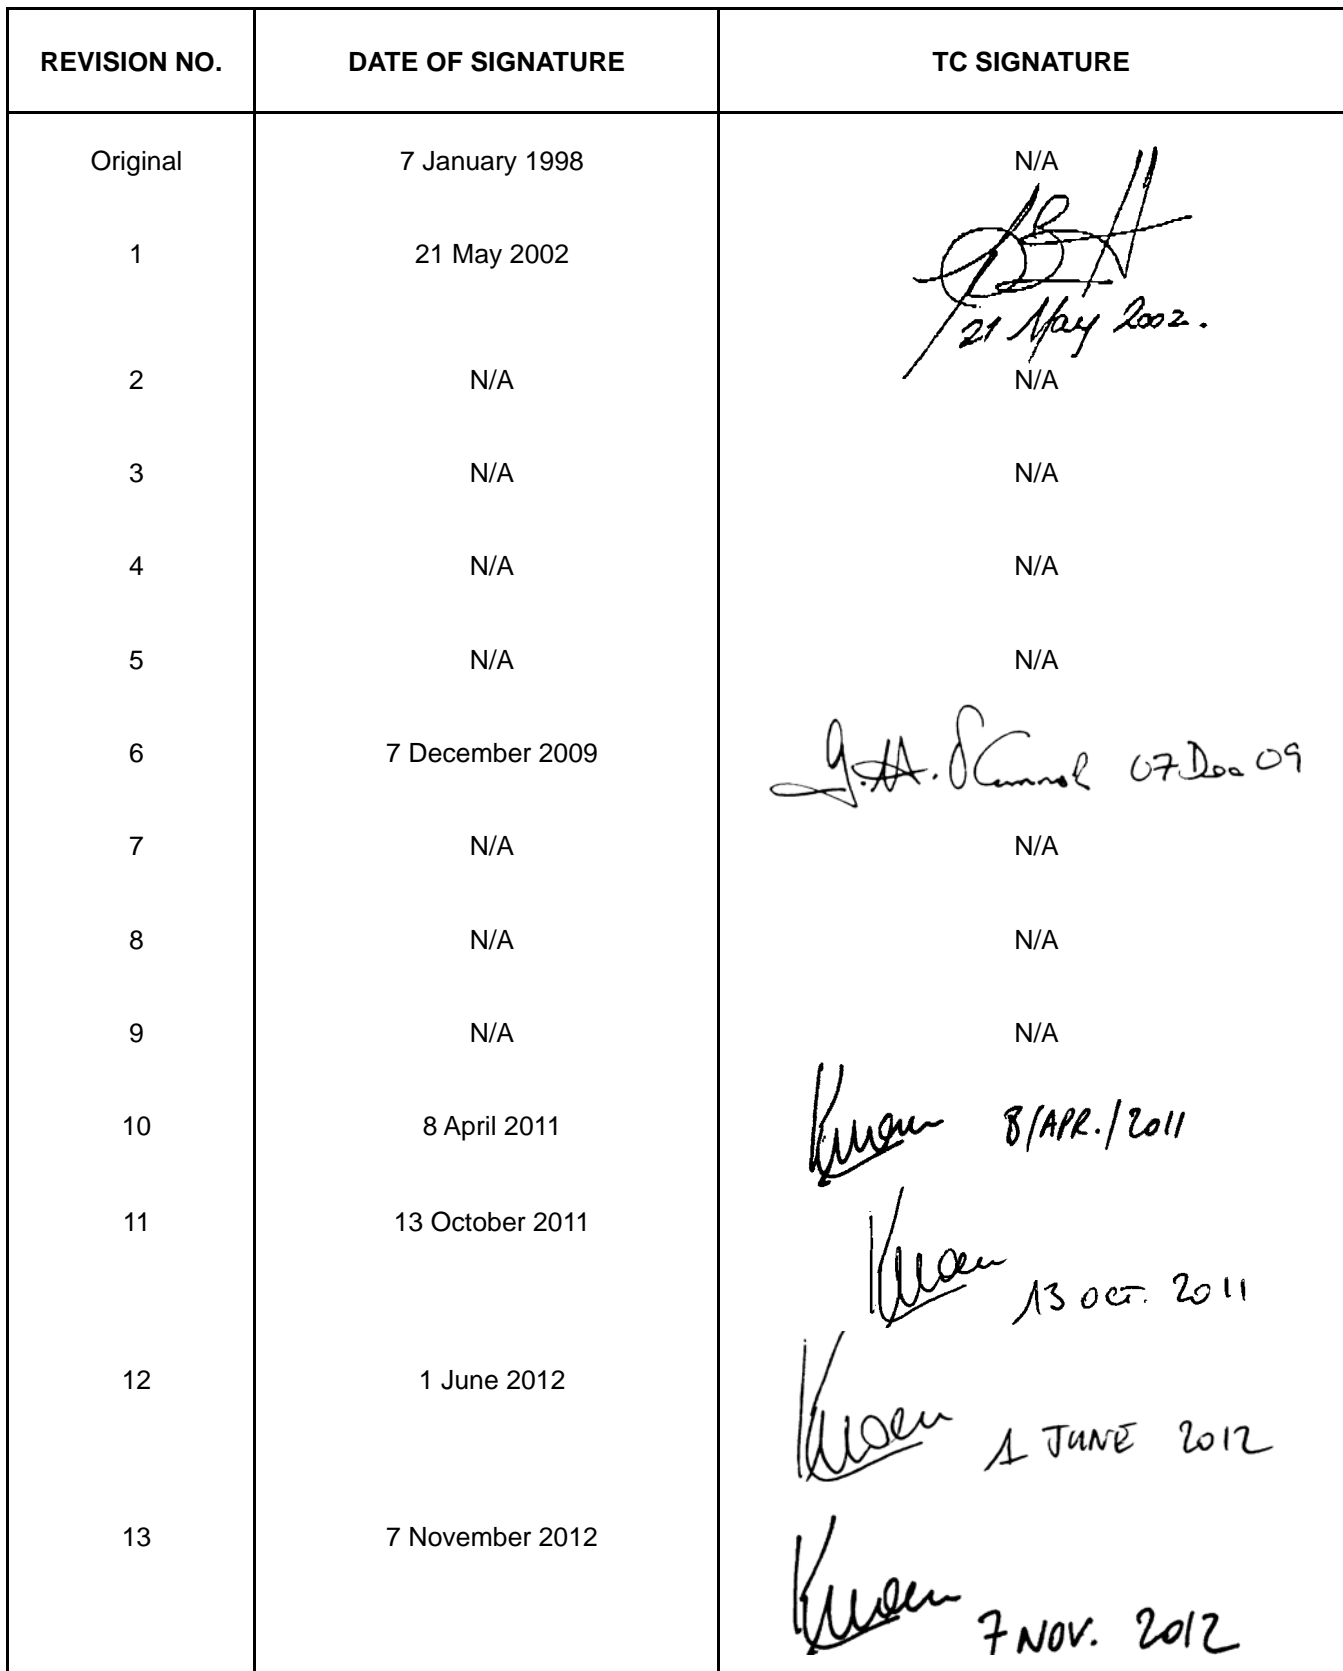 REVISION NO. DATE OF SIGNATURE TC SIGNATURE
Original 7 January 1998 N/A
1 21 May 2002
21 May 2002.
2 N/A N/A
3 N/A N/A
4 N/A N/A
5 N/A N/A
6 7 December 2009 07 Dec 09
7 N/A N/A
8 N/A N/A
9 N/A N/A
10 8 April 2011 8/APR./2011
11 13 October 2011
13 OCT. 2011
12 1 June 2012
1 JUNE 2012
13 7 November 2012
7 NOV. 2012